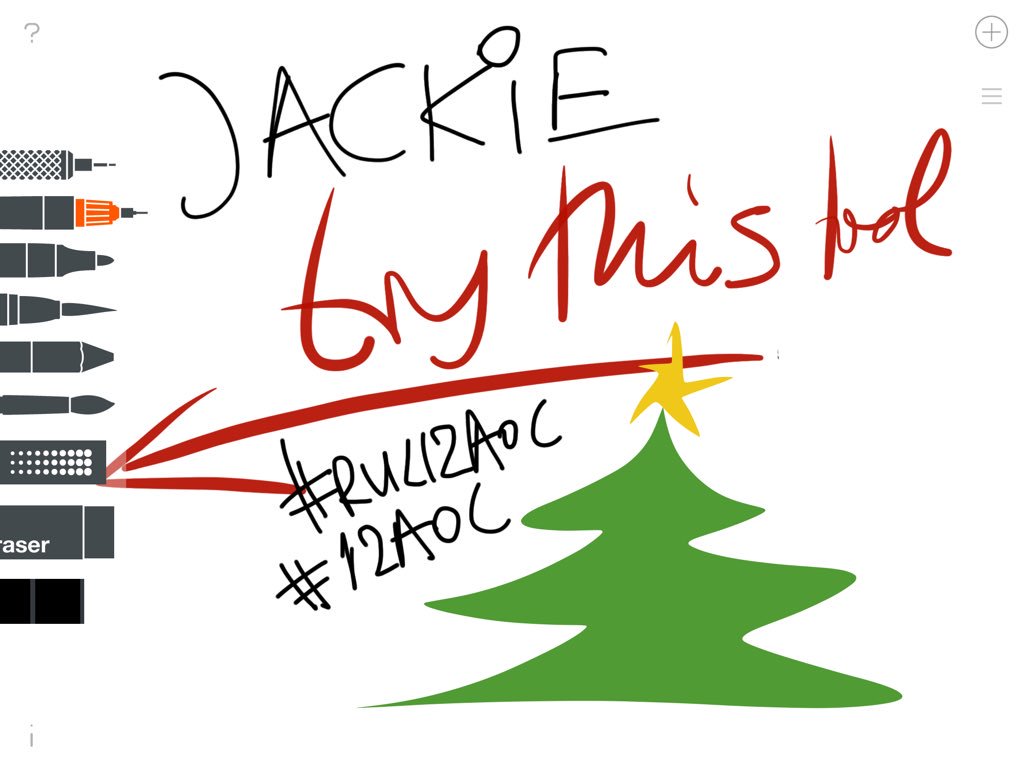 JACKiE
try this tool
#RUL12AOC
#12AOC
raser